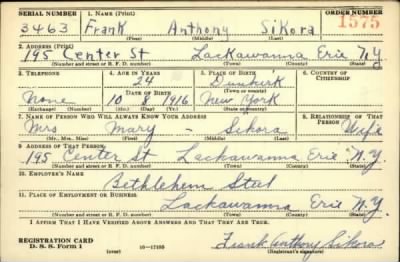 SERIAL NUMBER 1. NAME (Print) ORDER NUMBER
3463 Frank Anthony Sikora 1575
(First) (Middle) (Last)
2. ADDRESS (Print)
195 Center St Lackawanna Erie N.Y
(Number and street or R. F. D. number) (Town) (County) (State)
3. TELEPHONE 4. AGE IN YEARS 5. PLACE OF BIRTH 6. COUNTRY OF CITIZENSHIP
24 Dunkirk
DATE OF BIRTH (Town or county)
None 10 1916 New York
(Exchange) (Number) (Mo.) (Day) (Yr.) (State or country)
7. NAME OF PERSON WHO WILL ALWAYS KNOW YOUR ADDRESS 8. RELATIONSHIP OF THAT PERSON
Mrs Mary - Sikora Wife
(Mr., Mrs., Miss) (First) (Middle) (Last)
9. ADDRESS OF THAT PERSON
195 Center St Lackawanna Erie N.Y.
(Number and street or R. F. D. number) (Town) (County) (State)
10. EMPLOYER'S NAME
Bethlehem Steel
11. PLACE OF EMPLOYMENT OR BUSINESS
Lackawanna Erie N.Y.
(Number and street or R. F. D. number) (Town) (County) (State)
I AFFIRM THAT I HAVE VERIFIED ABOVE ANSWERS AND THAT THEY ARE TRUE.
REGISTRATION CARD
D. S. S. Form 1 (over) 16-17105 Frank Anthony Sikora
(Registrant's signature)